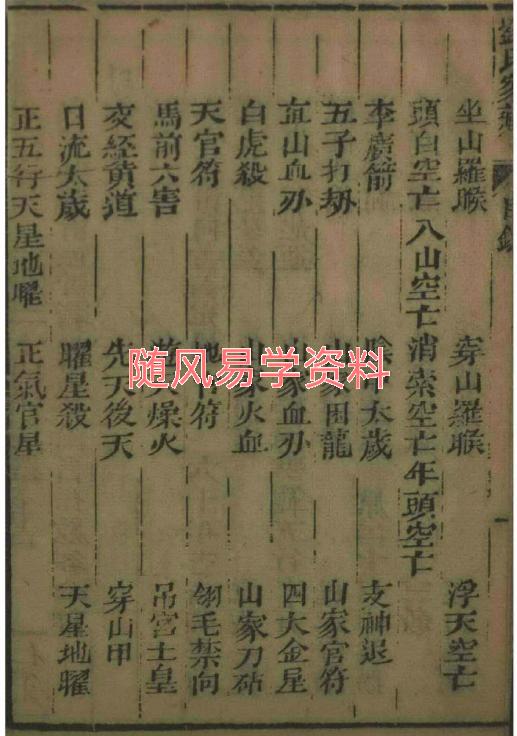 坐山羅睺 穿山羅睺 浮天空亡
頭白空亡 入山空亡 消索空亡 年頭空亡
李廣箭 太歲 支神退
五子打劫 山家困龍 山家官符
血刃 山家血刃 四大金星
白虎殺 山家火血 山家刀砧
天官符 地官符 翎毛禁向
馬前六害 燥火 吊宮土皇
交經黃道 先天後天 穿山甲
日流太歲 曜星殺 天星地曜
正五行天星地曜 正氣官星
随风易学资料